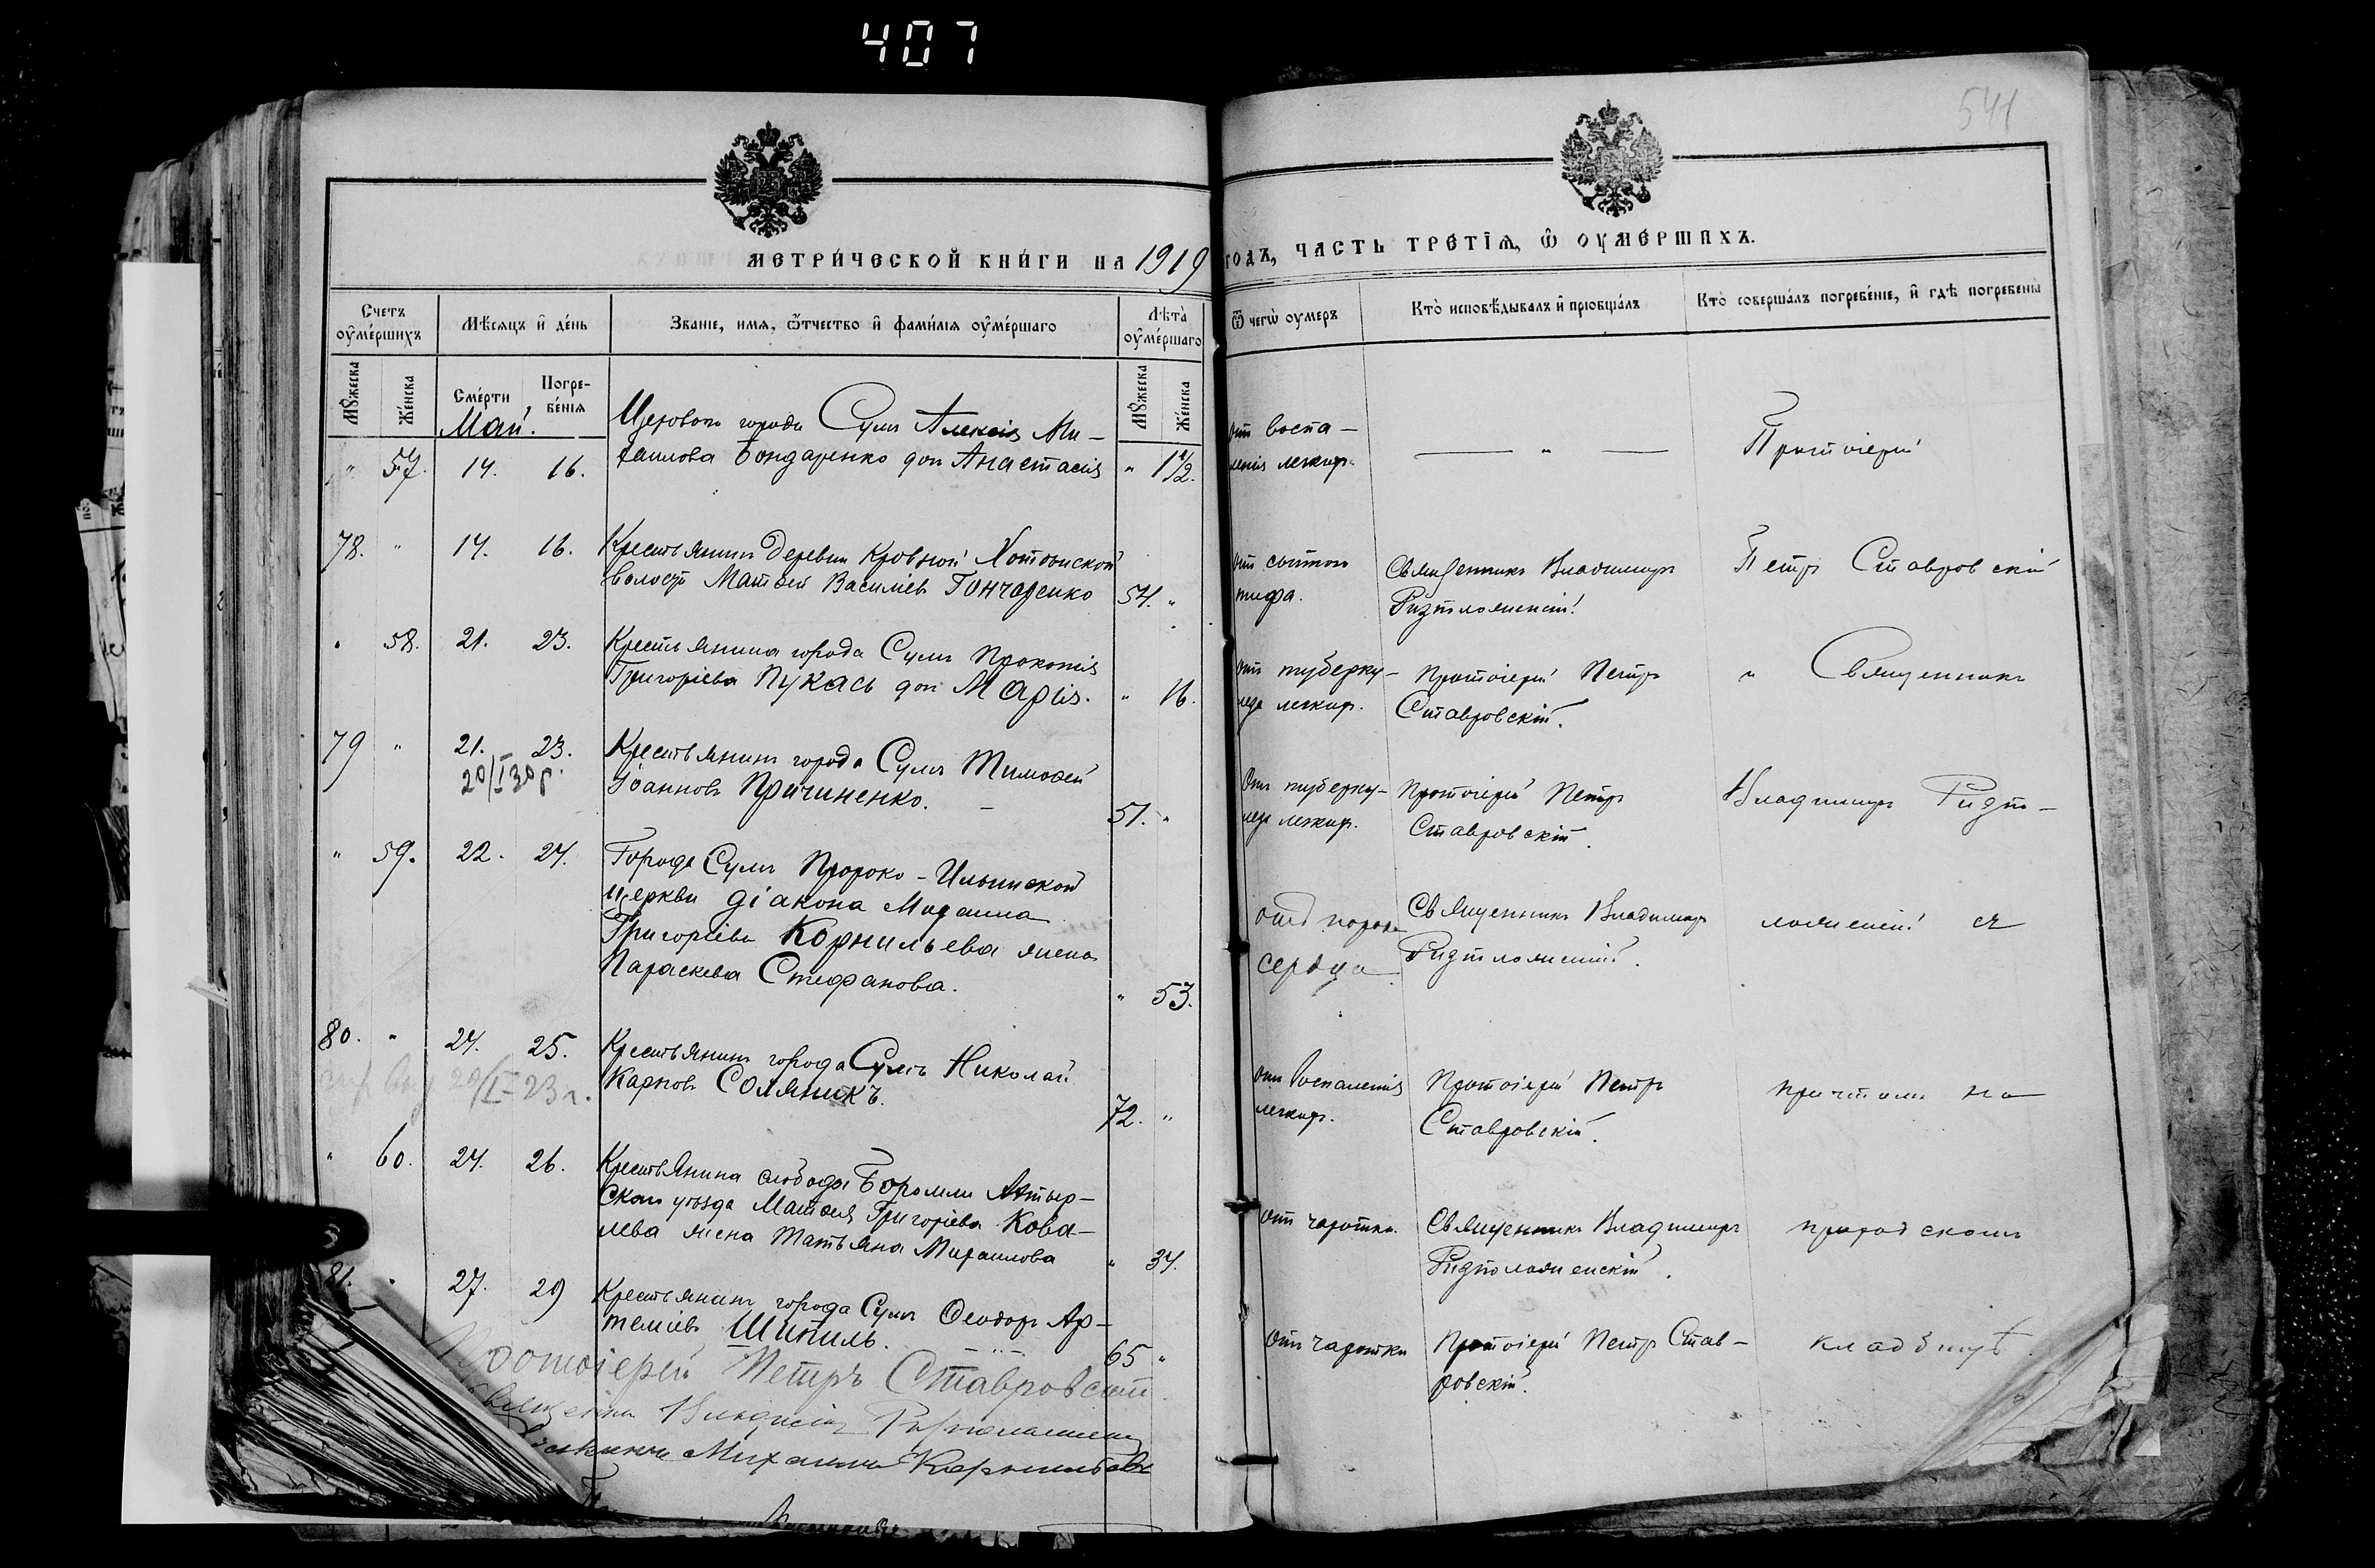 407
541
МЕТРИЧЕСКОЙ КНИГИ НА 1919
ГОДЪ, ЧАСТЬ ТРЕТІЯ, Ѿ ОУМЕРШИХЪ.
Счетъ оумершихъ
Мѣсяцъ и день
Званіе, имя, ѿчество и фамилія оумершаго
Лѣта оумершаго
Ѿ чегѡ оумеръ
Кто исповѣдывалъ и пріобщалъ
Кто совершалъ погребеніе, и гдѣ погребены
Мужеска
Женска
Смерти
Погребенія
Мужеска
Женска
Май.
" 57. 14. 16.
Цехового города Сумъ Алексія Ми-
хаилова Бондаренко дочь Анастасія
" 1½.
отъ воспа-
ленія легкихъ
— " —
Протоіерей
78. " 14. 16.
Крестьянинъ деревни Кровной Хотѣнской
волости Матѳей Василіевъ Гончаренко
54. "
отъ сыпного
тифа.
Священникъ Владимиръ
Петръ Ставровскій
" 58. 21. 23.
Крестьянина города Сумъ Прокопія
Григоріева Пукась дочь Марія.
" 16.
отъ туберку-
леза легких.
Протоіерей Петръ
Ставровскій.
и Священникъ
79 " 21. 23.
20/I 30 р.
Крестьянинъ города Сумъ Тимоѳей
Іоанновъ Причиненко.
51. "
Отъ туберку-
леза легких.
Протоіерей Петръ
Ставровскій.
Владимиръ
" 59. 22. 24.
Города Сумъ Пророко-Ильинской
церкви діакона Михаила
Григоріева Корнильева жена
Параскева Стефанова.
" 53.
отъ порока
сердца
Священникъ Владимиръ
съ
80. " 24. 25.
20/I-23 г.
Крестьянинъ города Сумъ Николай
Карповъ Соляникъ.
72. "
отъ воспаленія
легких.
Протоіерей Петръ
Ставровскій.
причтомъ на
" 60. 24. 26.
Крестьянина слободы Боромли Ахтыр-
скаго уѣзда Матѳея Григоріева Кова-
лева жена Татьяна Михаилова
" 34.
отъ чахотки.
Священникъ Владимиръ
городскомъ
81. " 27. 29
Крестьянинъ города Сумъ Ѳеодоръ Ар-
теміевъ Шипиль.
65 "
отъ чахотки
Протоіерей Петръ Став-
ровскій.
кладбищѣ.
Протоіерей Петръ Ставровскій
Михаилъ Корнильевъ